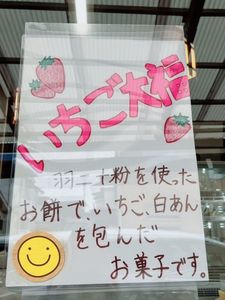 いちご大福
羽二重粉を使った
お餅で、いちご、白あん
を包んだ
お菓子です。